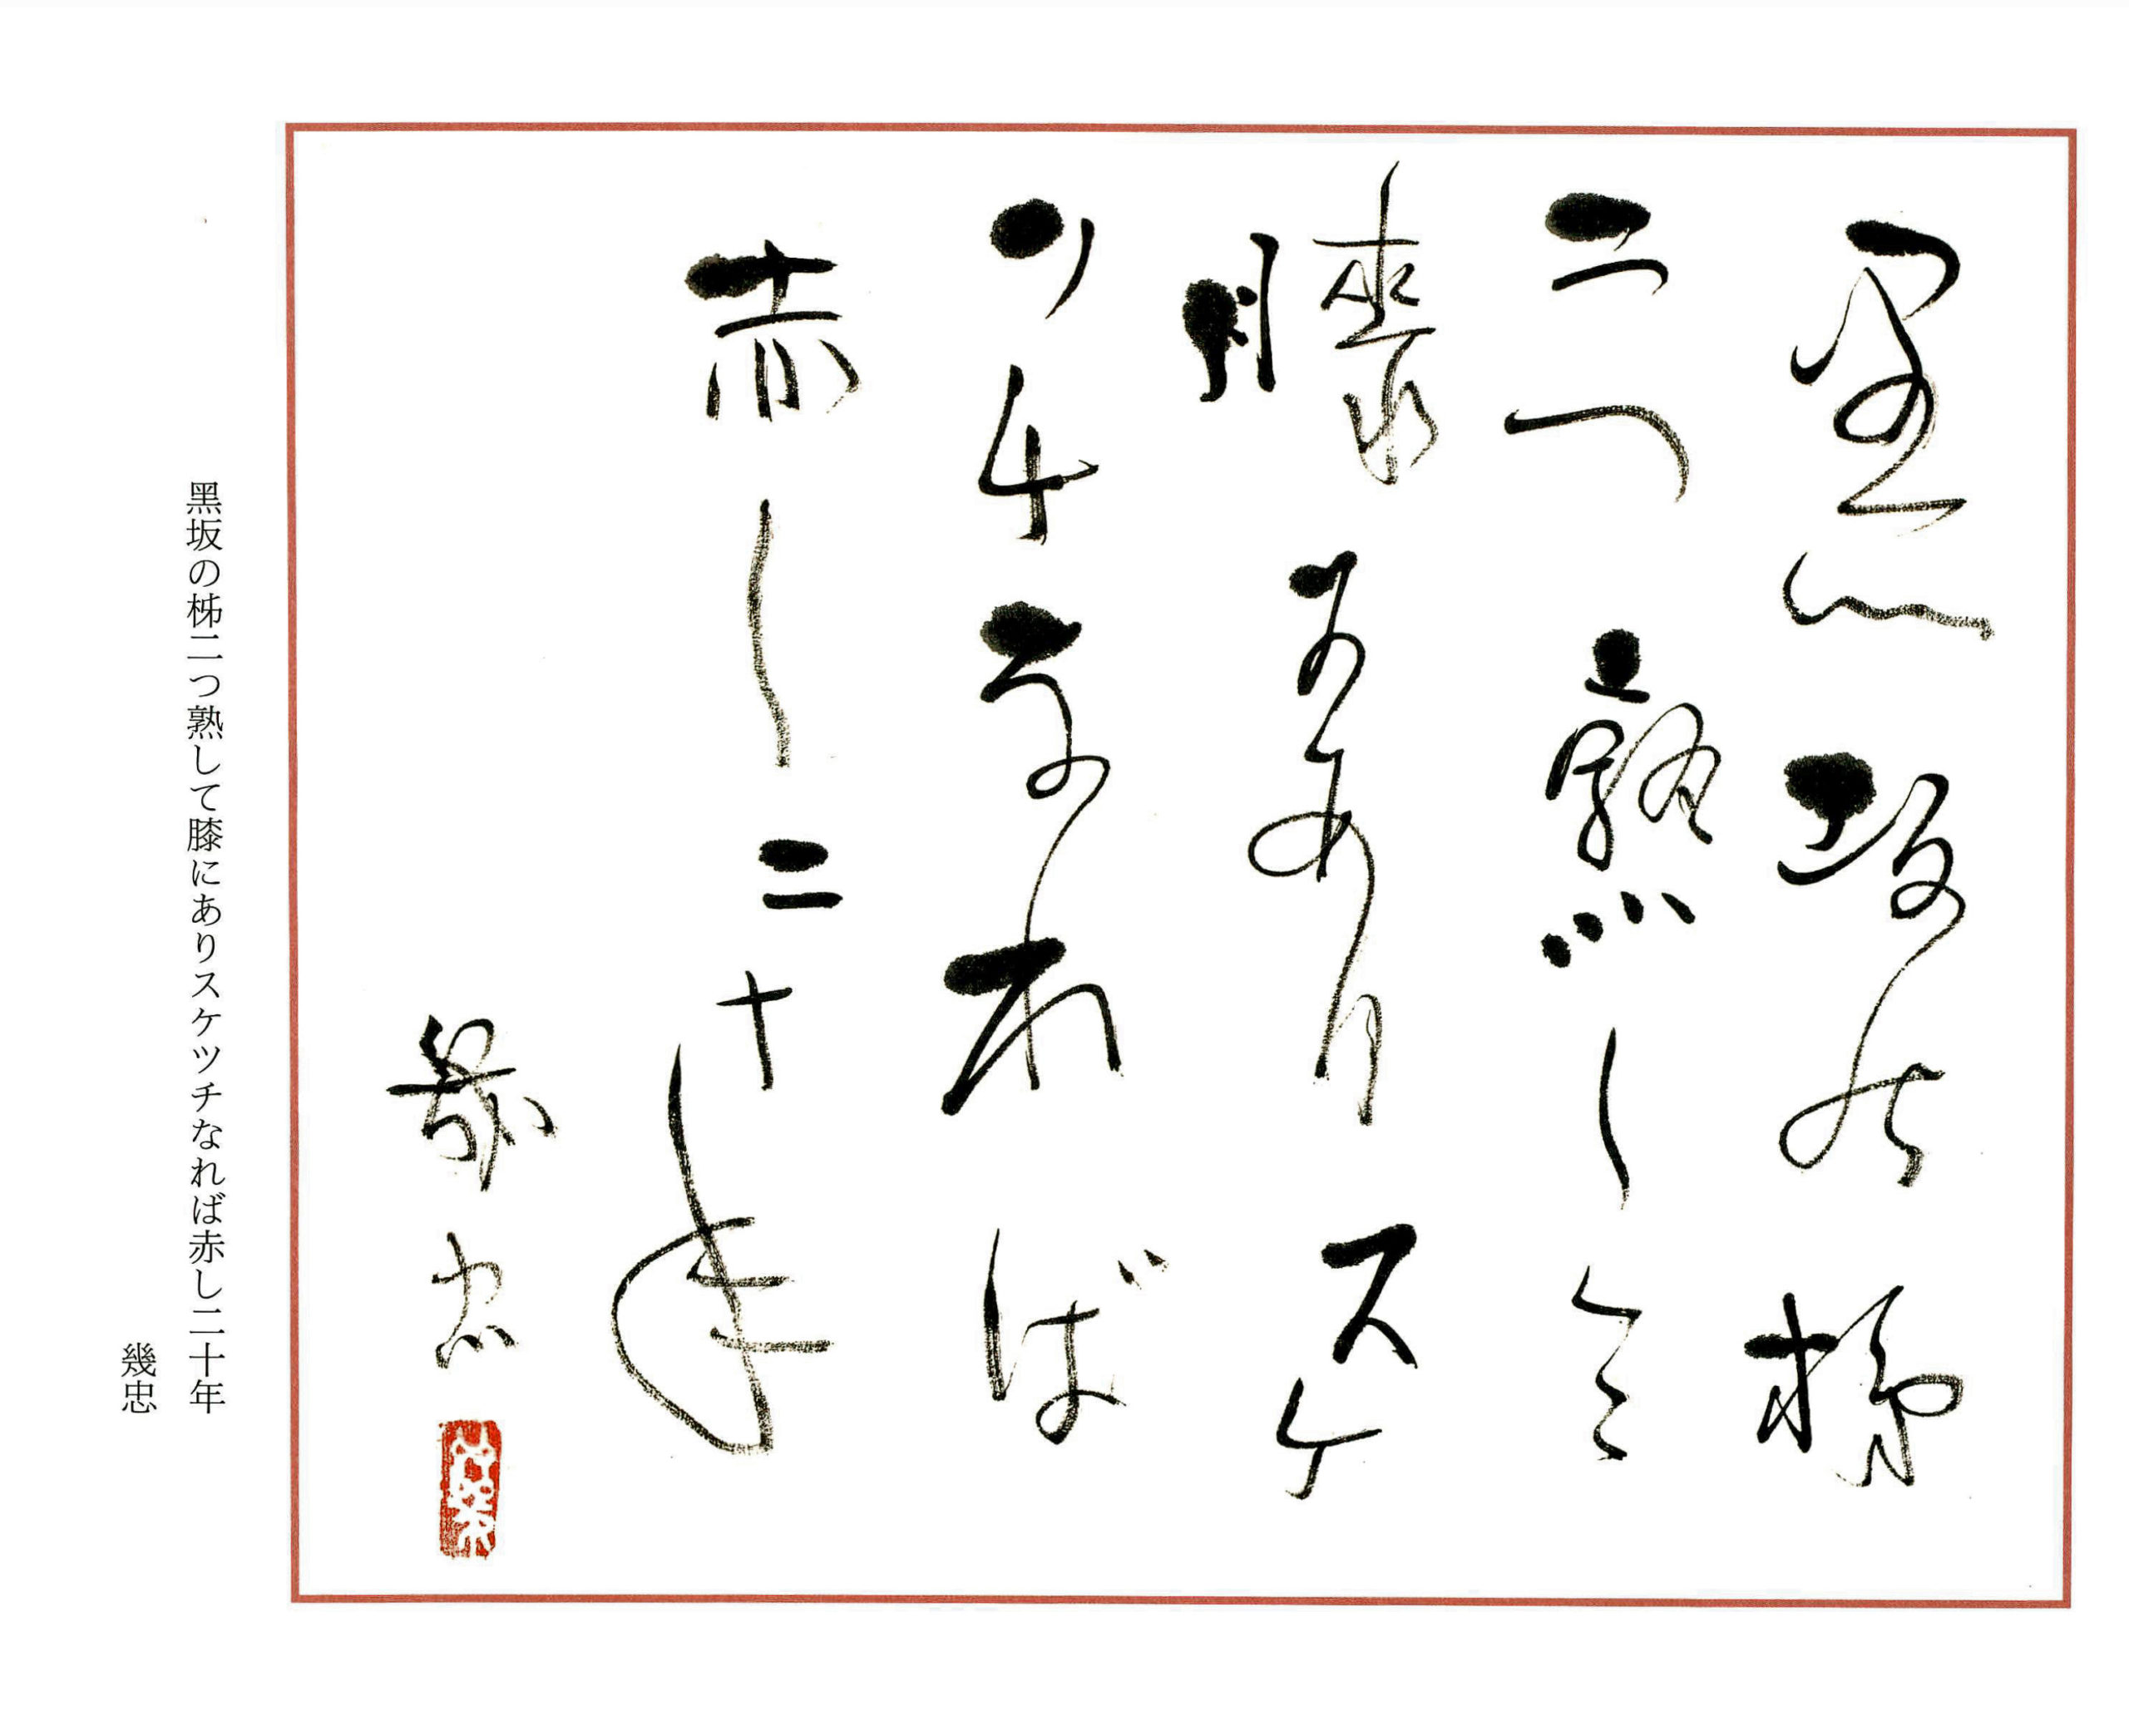 黒坂の柹
二つ熟して
膝にありスケ
ツチなれば
赤し二十年
幾忠
黒坂の柹二つ熟して膝にありスケツチなれば赤し二十年
幾忠